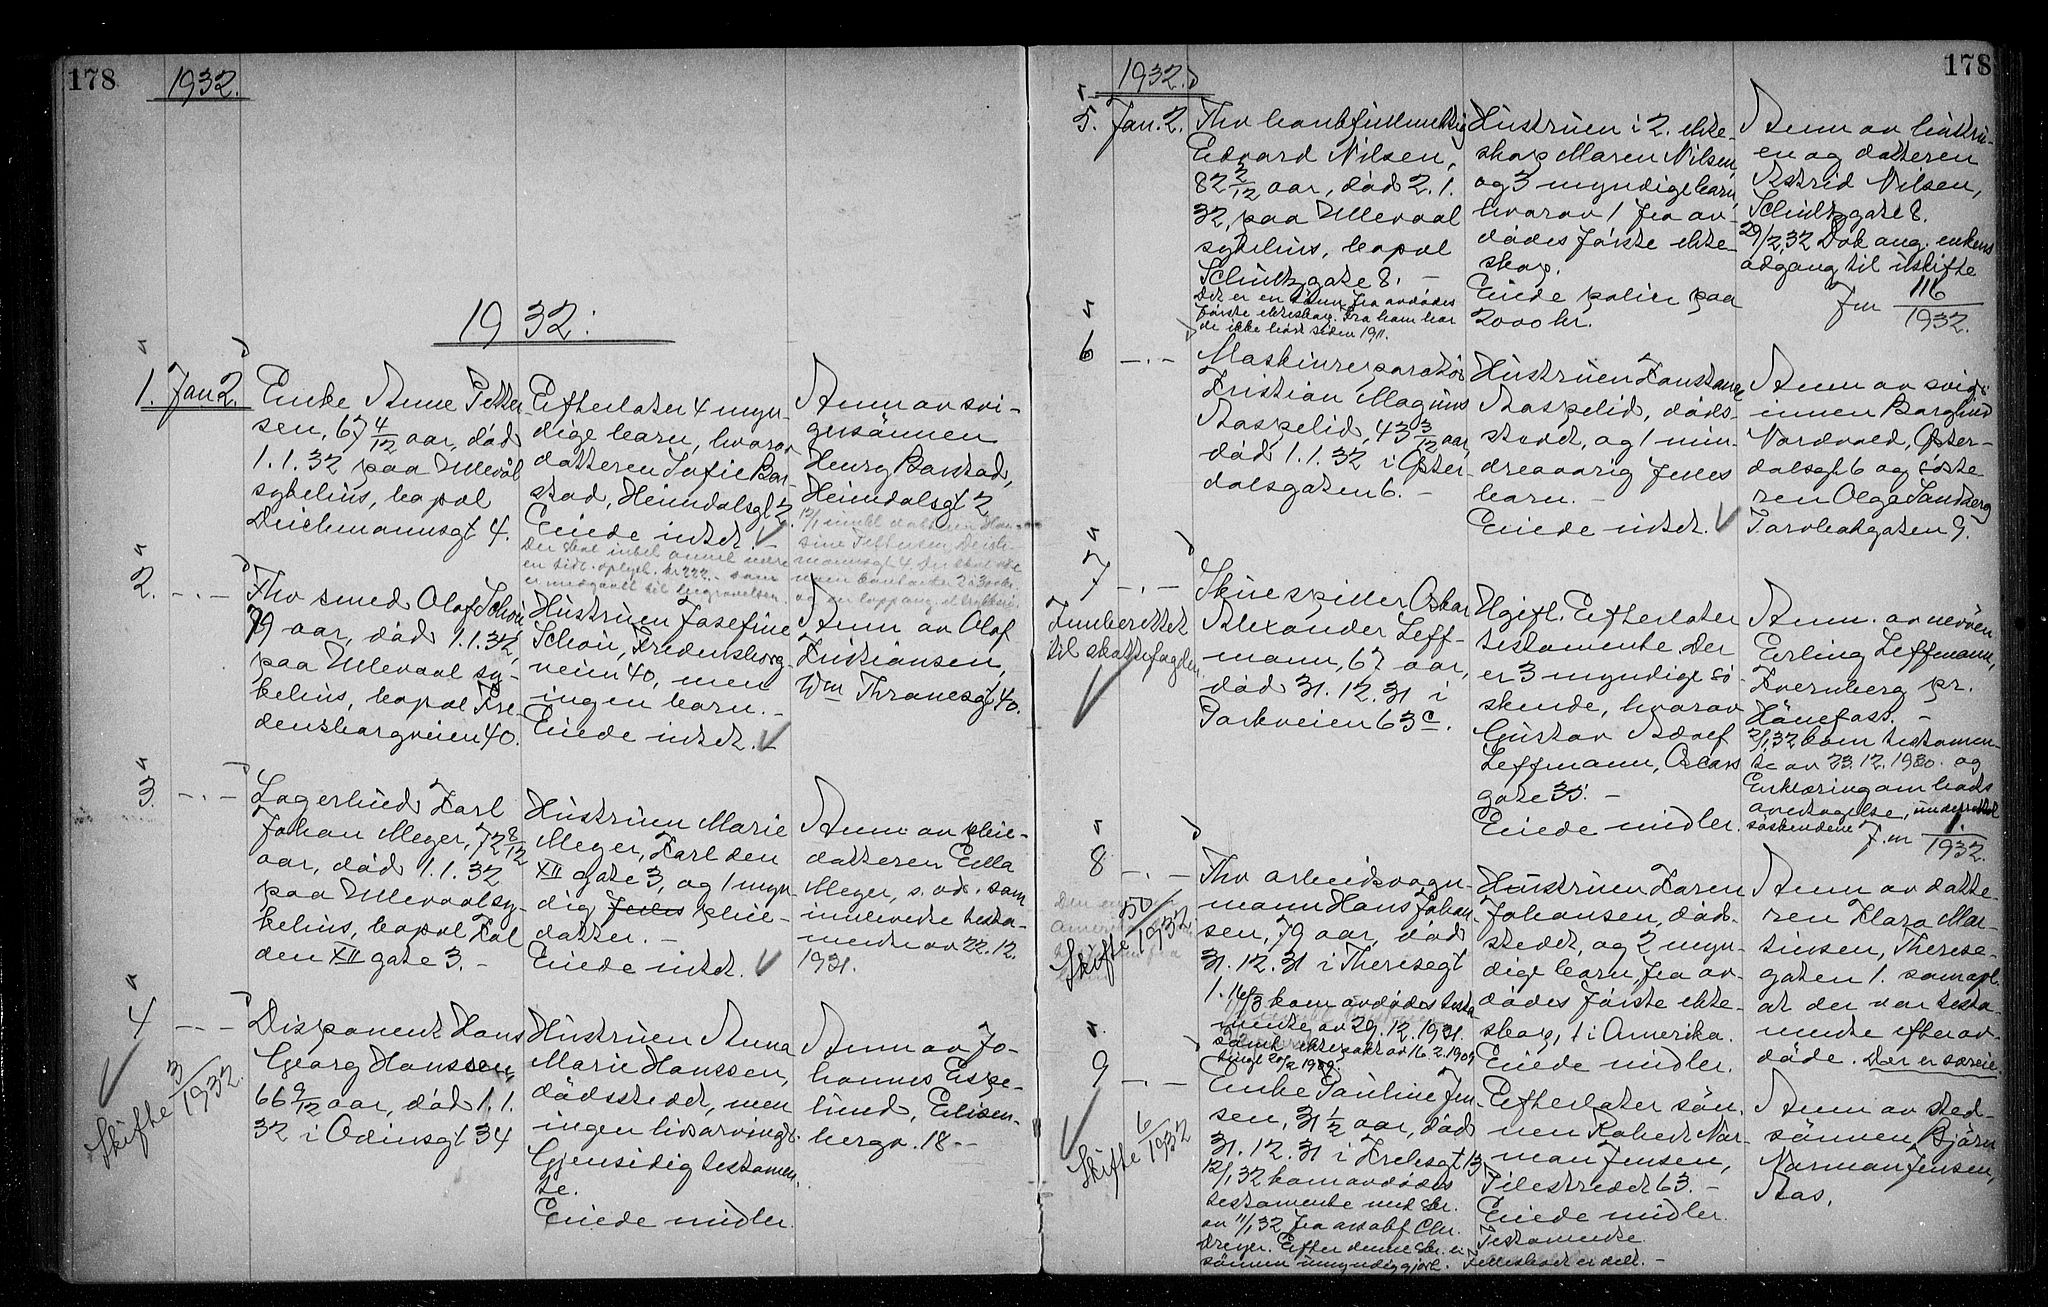 178
1932.
1932.
1. Jan 2.
Enke Anne Petter-
sen, 67 4/12 aar, död
1.1.32 paa Ullevål
sykehus, bopæl
Deichmannsgt 4.
Efterlater 4 myn-
dige barn, hvorav
datteren Sofie Bar-
stad, Heimdalsgt 2.
Eiede intet.
en tidl. oplyst. kr 222.- som
er medgaatt til begravelsen.
Anm av svi-
gersönnen
Henry Barstad,
Heimdalsgt 2
2. -.-
Fhv smed Olof Schou
79 aar, död 1.1.32,
paa Ullevaal sy-
kehus, bopæl Fre
densborgveien 40.
Hustruen Josefine
Schou, Fredensborg-
veien 40, men
ingen barn. -
Eiede intet.
Anm av Olof
Kristiansen,
Wm Thranesgt 40.
3. -.-
Lagerbud Karl
Johan Meyer, 72 8/12
aar, död 1.1.32
paa Ullevaal sy-
kehus, bopæl Kal
den XII gate 3. -
Hustruen Marie
Meyer, Karl den
XII gate 3, og 1 myn
dig felles pleie-
datter. -
Eiede intet.
Anm. av pleie-
datteren Ella
Meyer, s. sd. som
innleverte testa-
mente av 22.12.
1931.
4 -.-
Skifte 3/1932.
Disponent Hans
Georg Hanssen,
66 9/12 aar, död 1.1.
32 i Odinsgt 34
Hustruen Anna
Marie Hanssen,
dödsstedet, men
ingen livsarvinger.
Gjensidig testamen-
te.
Eiede midler.
Anm av Jo-
hannes Espe-
lund, Eilisen-
bergv. 18 -
178
1932.
5. Jan. 2.
Fhv bankfullmektig
Edvard Nilsen,
82 2/12 aar, död 2.1.
32, paa Ullevaal
sykehus, bopæl
Schultzgate 8. -
Det er en sönn fra avdödes
förste ekteskap. Fra ham har
de ikke hört siden 1911.
Hustruen i 2. ekte-
skap Maren Nilsen,
og 3 myndige barn,
hvorav 1 fra av-
dödes förste ekte-
skap.
Eiede polise paa
2000 kr.
Anm av hustru-
en og datteren
Astrid Nilsen,
Schultzgate 8.
29/2.32 Dok ang. enkens
adgang til uskifte
Jnr 116/1932.
6 -.-
Maskinreparatör
Kristian Magnus
Aaspelid, 43 3/12 aar,
död 1.1.32 i Öster-
dalsgaten 6. -
Hustruen Konstance
Aaspelid, döds-
stedet, og 1 min-
dreaarig felles
barn. -
Eiede intet.
Anm av svig-
innen Borghild
Nordvold, Öster-
dalsgt. 6 og söste-
ren Olga Sandberg
Torvbakgaten 9.
7 -.-
Innberettet
til skattefogden
Skuespiller Oskar
Alexander Leff-
mann, 67 aar,
död 31.12.31 i
Parkveien 63 c.
Ugift. Efterlater
testamente. Der
er 3 myndige sö-
skende, hvorav
Gustav Adolf
Leffmann, Oscars
gate 35. -
Eiede midler.
Anm. av nevöen
Erling Leffmann,
Kvernberg pr.
Hönefoss. -
2/1.32 kom testamen-
te av 23.12.1930. og
Erklæring om bods
overtagelse, underrettet
söskendene J.nr 1/1932.
8 -.-
Skifte 50/1932.
Fhv arbeidsvogn-
mann Hans Johan-
sen, 79 aar, död
31.12.31 i Theresegt
1. 16/3 kom avdödes testa
mente av 29.12.1931.
samt ektepakt av 16.2.1909
tingl 20/2 1909.
Hustruen Karen
Johansen, död-
stedet, og 2 myn-
dige barn fra av-
dödes förste ekte-
skap, 1 i Amerika.
Eiede midler.
Anm av datte-
ren Klara Mar-
tinsen, Therese-
gaten 1. som opl.
at der var testa-
mente efter av-
döde. Der er særeie.
9 -.-
Skifte 6/1932
Enke Pauline Jen
sen, 31 1/2 aar, död
31.12.31 i Krebsgt 13
12/1.32 kom avdödes
testamente med skr.
av 11/1.32 fra o.r.sakf Chr.
Dreyer. Efter denne skr. er
sönnen umyndiggjort.
Efterlater sön-
nen Robert Nor-
man Jensen,
Pilestredet 63. -
Eiede midler.
Testamente.
Fellesboet er delt. -
Anm av sted-
sönnen Björn
Norman Jensen,
Aas,